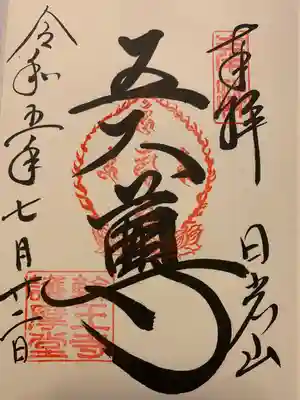 奉拝
日光山
五大尊
令和五年七月十二日
輪王寺
護摩堂